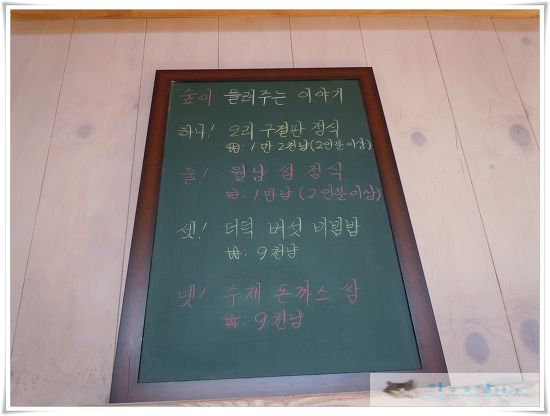 숲이 들려주는 이야기
하나! 오리 구절판 정식
1만 2천냥(2인분이상)
둘! 월남 쌈 정식
1만냥 (2인분이상)
셋! 더덕 버섯 비빔밥
9천냥
넷! 수제 돈까스 쌈
9천냥